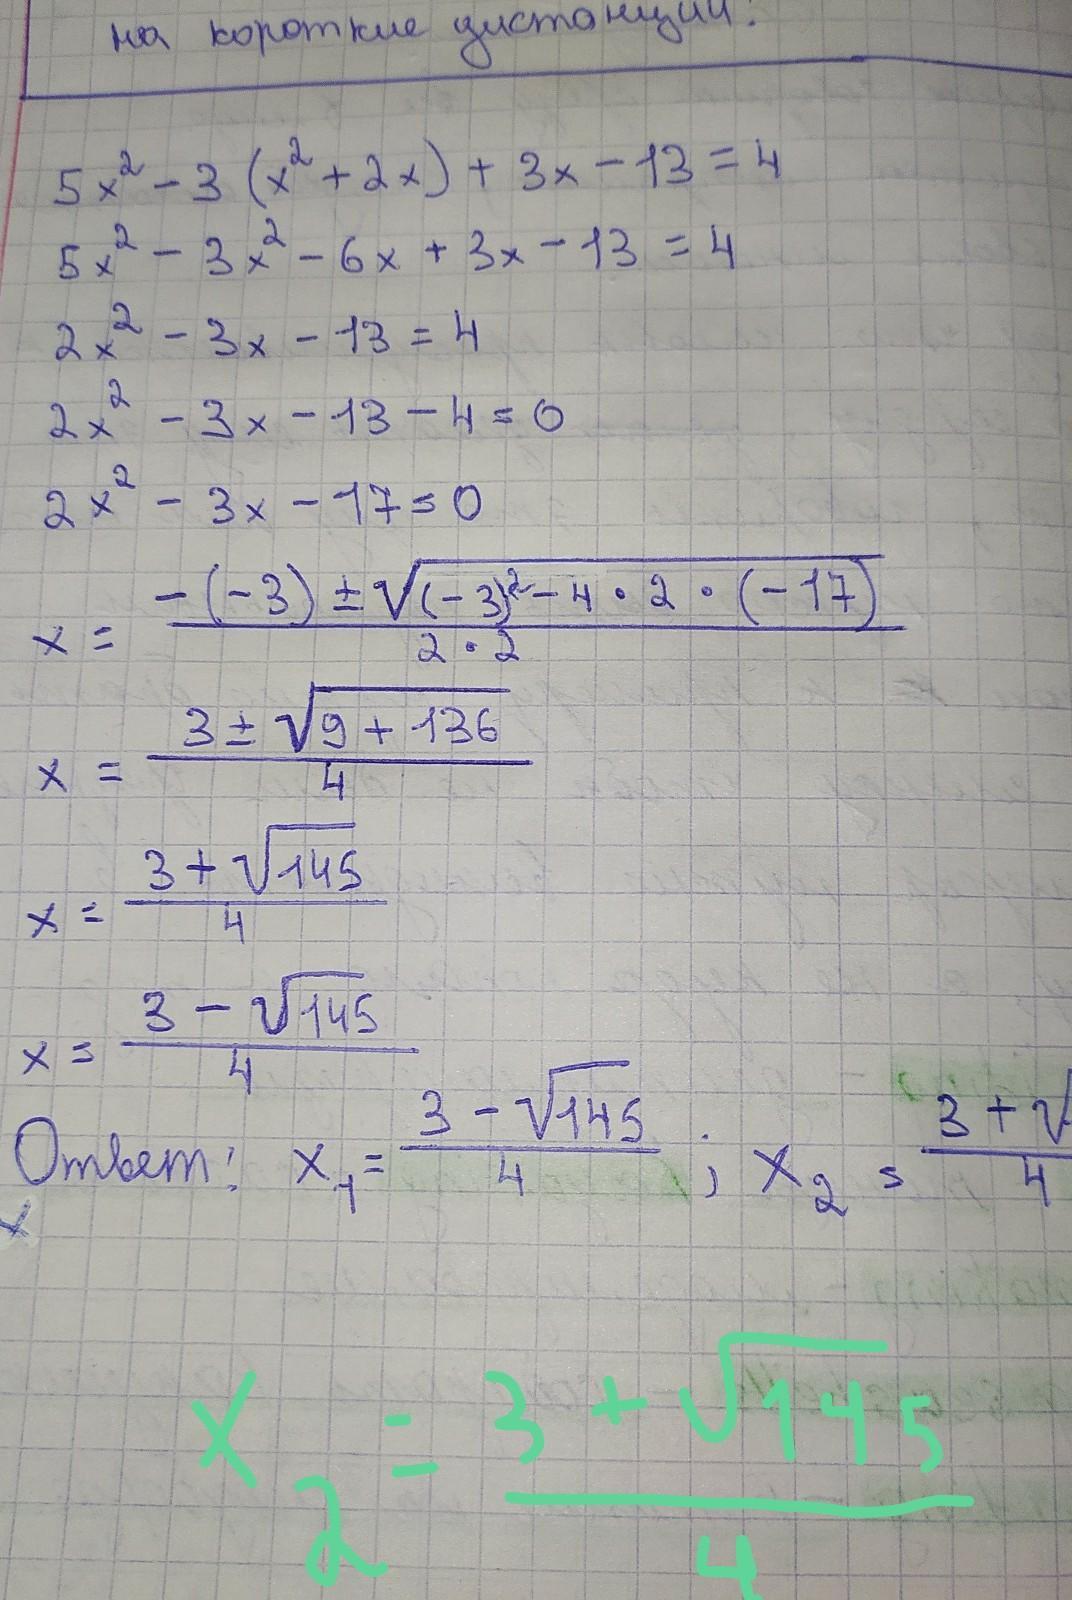 на короткие дистанции.
5x² - 3 (x² + 2x) + 3x - 13 = 4
5x² - 3x² - 6x + 3x - 13 = 4
2x² - 3x - 13 = 4
2x² - 3x - 13 - 4 = 0
2x² - 3x - 17 = 0
x = (-(-3) ± √((-3)² - 4 · 2 · (-17))) / (2 · 2)
x = (3 ± √(9 + 136)) / 4
x = (3 + √145) / 4
x = (3 - √145) / 4
Ответ: x₁ = (3 - √145) / 4 ; x₂ = (3 + √ / 4
x₂ = (3 + √145) / 4